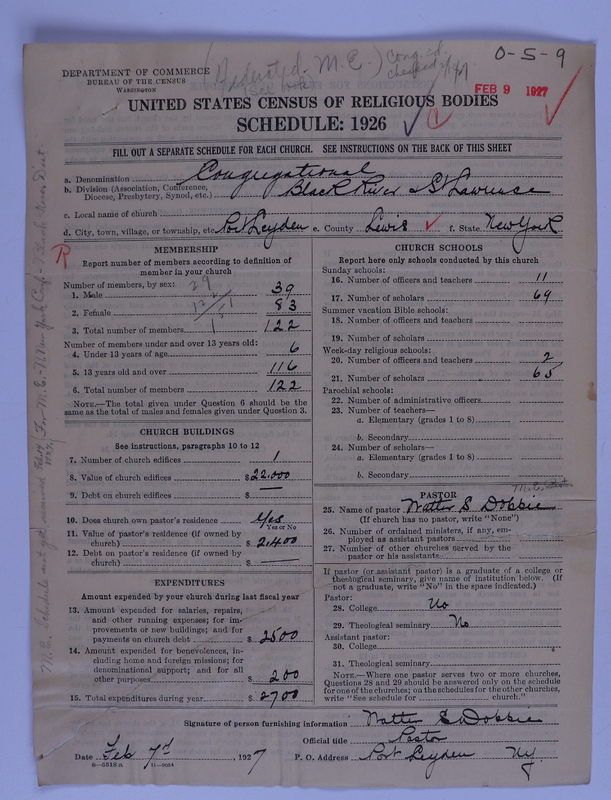 (Federated - M.E.) Cong. ed.
O-5-9
DEPARTMENT OF COMMERCE
BUREAU OF THE CENSUS
WASHINGTON
FEB 9 1927
UNITED STATES CENSUS OF RELIGIOUS BODIES
SCHEDULE: 1926
FILL OUT A SEPARATE SCHEDULE FOR EACH CHURCH. SEE INSTRUCTIONS ON THE BACK OF THIS SHEET
a. Denomination Congregational
b. Division (Association, Conference, Diocese, Presbytery, Synod, etc.) Black River & St Lawrence
c. Local name of church
d. City, town, village, or township, etc. Port Leyden e. County Lewis f. State New York
R
MEMBERSHIP
Report number of members according to definition of
member in your church
Number of members, by sex: 29
1. Male 39
2. Female 83
3. Total number of members 122
Number of members under and over 13 years old:
4. Under 13 years of age 6
5. 13 years old and over 116
6. Total number of members 122
NOTE.—The total given under Question 6 should be the
same as the total of males and females given under Question 3.
CHURCH BUILDINGS
See instructions, paragraphs 10 to 12
7. Number of church edifices 1
8. Value of church edifices $22.000
9. Debt on church edifices $ —
10. Does church own pastor's residence Yes
Yes or No
11. Value of pastor's residence (if owned by
church) $2.400
12. Debt on pastor's residence (if owned by
church) $ —
EXPENDITURES
Amount expended by your church during last fiscal year
13. Amount expended for salaries, repairs,
and other running expenses; for im-
provements or new buildings; and for
payments on church debt $2500
14. Amount expended for benevolences, in-
cluding home and foreign missions; for
denominational support; and for all
other purposes $200
15. Total expenditures during year $2700
CHURCH SCHOOLS
Report here only schools conducted by this church
Sunday schools:
16. Number of officers and teachers 11
17. Number of scholars 69
Summer vacation Bible schools:
18. Number of officers and teachers
19. Number of scholars
Week-day religious schools:
20. Number of officers and teachers 2
21. Number of scholars 65
Parochial schools:
22. Number of administrative officers
23. Number of teachers—
a. Elementary (grades 1 to 8)
b. Secondary
24. Number of scholars—
a. Elementary (grades 1 to 8)
b. Secondary
PASTOR
25. Name of pastor Walter S Dobbie
(If church has no pastor, write "None")
26. Number of ordained ministers, if any, em-
ployed as assistant pastors
27. Number of other churches served by the
pastor or his assistants
If pastor (or assistant pastor) is a graduate of a college or
theological seminary, give name of institution below. (If
not a graduate, write "No" in the space indicated.)
Pastor:
28. College No
29. Theological seminary No
Assistant pastor:
30. College
31. Theological seminary
NOTE.—Where one pastor serves two or more churches,
Questions 28 and 29 should be answered only on the schedule
for one of the churches; on the schedules for the other churches,
write "See schedule for church."
Signature of person furnishing information Walter S Dobbie
Official title Pastor
Date Feb 7d, 1927 P. O. Address Port Leyden NY
8-5518a 11-9034